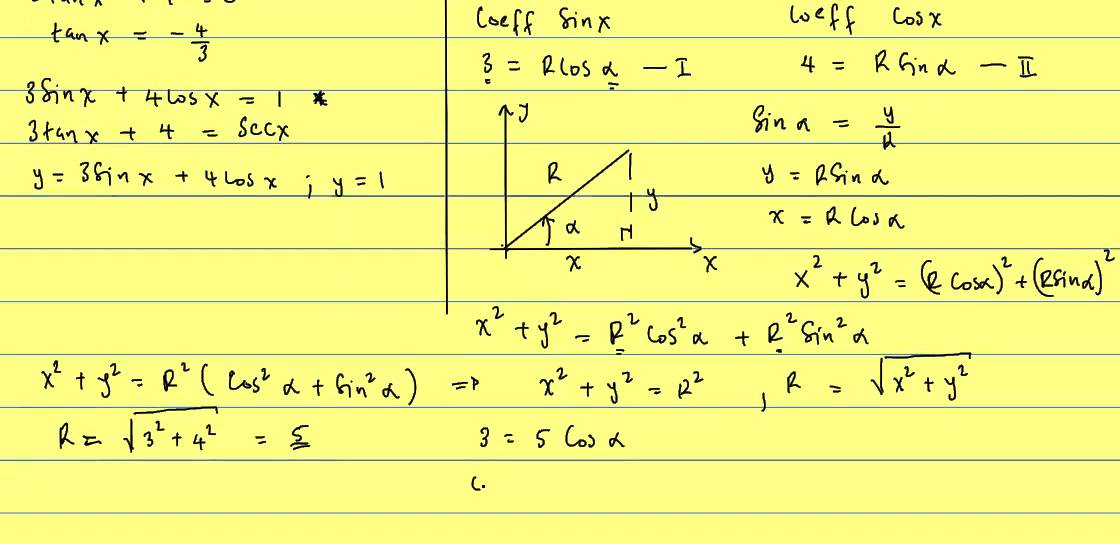 3tan x + 4 = 0
tan x = - 4/3
3Sinx + 4Cosx = 1 *
3tanx + 4 = Secx
y = 3Sinx + 4Cosx ; y = 1
Coeff Sinx
3 = RCosα — I
Coeff Cosx
4 = RSinα — II
y
R
y
α
x
x
Sinα = y/R
y = RSinα
x = RCosα
x² + y² = (RCosα)² + (RSinα)²
x² + y² = R²Cos²α + R²Sin²α
x² + y² = R²(Cos²α + Sin²α) => x² + y² = R² , R = √(x² + y²)
R = √(3² + 4²) = 5
3 = 5Cosα